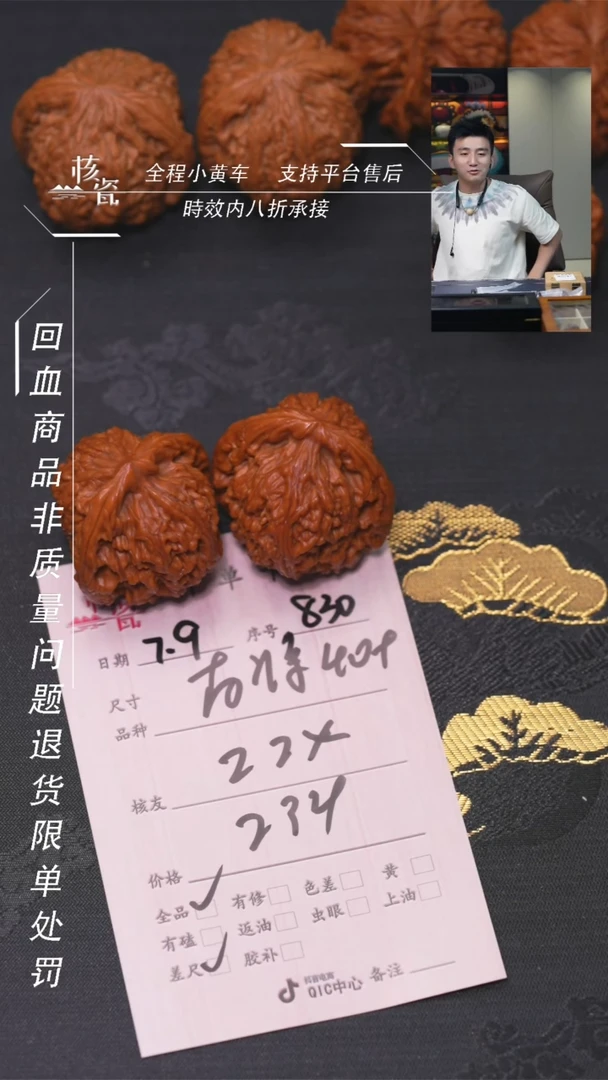 核瓷
全程小黄车 支持平台售后
時效内八折承接
回血商品非质量问题退货限单处罚
核瓷 单
日期 7.9 序号 830
尺寸 404
品种 22X
核友 234
价格
全品 ✓ 有修 色差 黄
有磕 返油 虫眼 上油
差尺 ✓ 胶补
抖音电商
QIC中心 备注